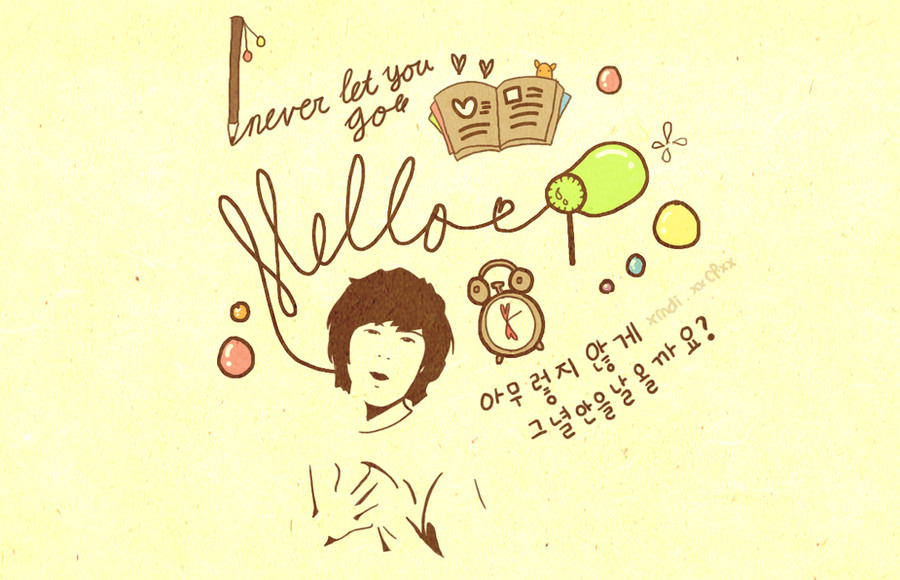 never let you
go
Hello
xmdi.xxcPxx
아무렇지 않게
그녈 안을 날 올까요?